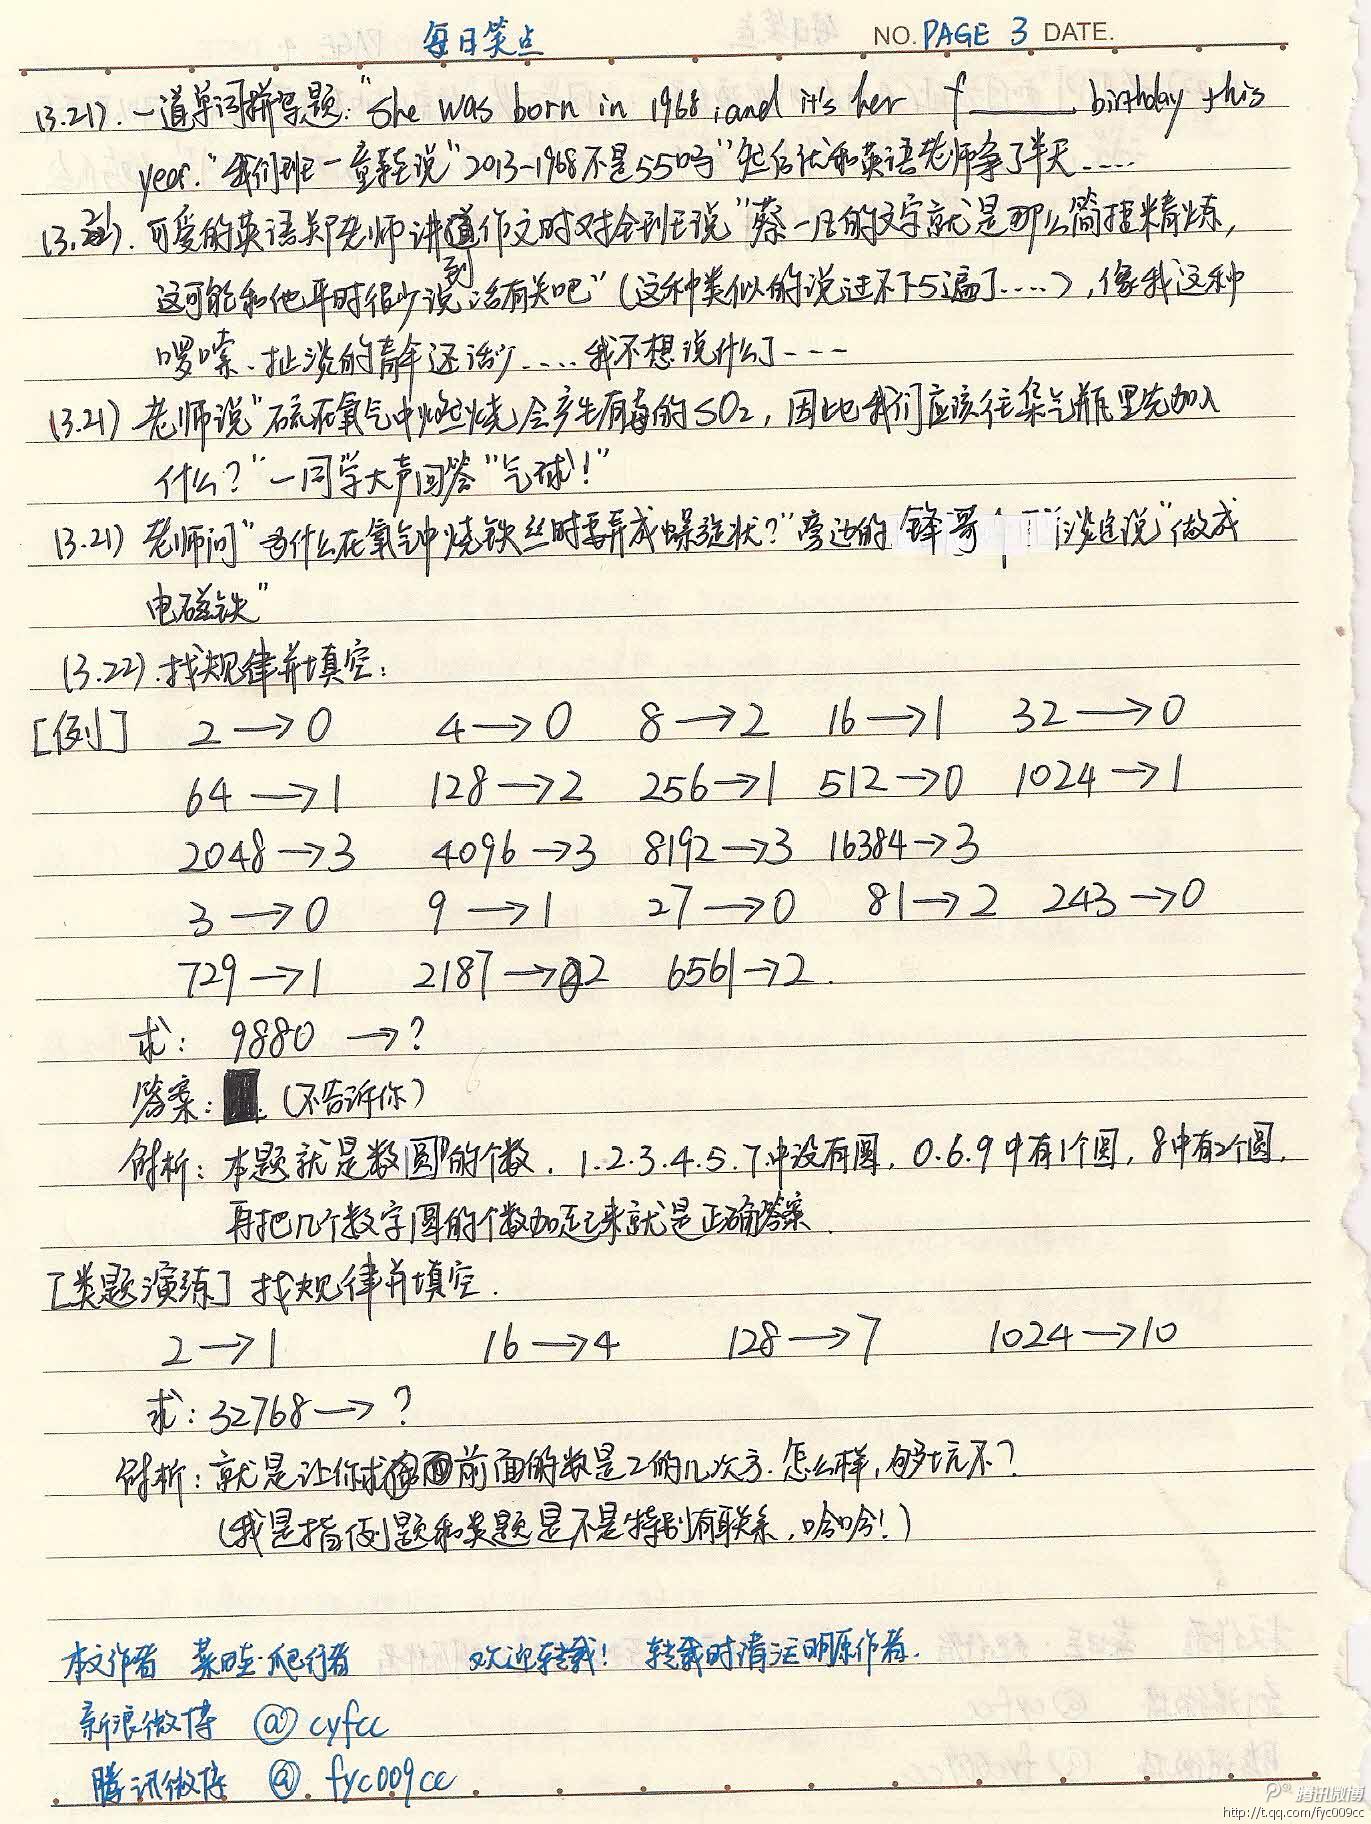 每日笑点 NO. PAGE 3 DATE.
(3.21). 一道单词拼写题:"she was born in 1968, and it's her f______ birthday this
year."我们班一童鞋说"2013-1968不是55吗"然后他和英语老师争了半天……
(3.21). 可爱的英语郑老师讲到作文时对全班说"蔡一凡的文字就是那么简捷精炼,
这可能和他平时很少说话有关吧"(这种类似的说过不下5遍了……),像我这种
啰嗦、扯淡的青年还话少……我不想说什么了---
(3.21) 老师说"硫在氧气中燃烧会产生有毒的SO2,因此我们应该往集气瓶里先加入
什么?"一同学大声回答"气球!"
(3.21) 老师问"为什么在氧气中烧铁丝时要弄成螺旋状?"旁边的锋哥淡定说"做成
电磁铁"
(3.22). 找规律并填空:
[例] 2→0 4→0 8→2 16→1 32→0
64→1 128→2 256→1 512→0 1024→1
2048→3 4096→3 8192→3 16384→3
3→0 9→1 27→0 81→2 243→0
729→1 2187→2 6561→2.
求: 9880→?
答案: (不告诉你)
解析: 本题就是数"圆"的个数. 1.2.3.4.5.7.中没有圆, 0.6.9中有1个圆, 8中有2个圆,
再把几个数字圆的个数加起来就是正确答案.
[类题演练] 找规律并填空.
2→1 16→4 128→7 1024→10
求: 32768→?
解析: 就是让你求前面的数是2的几次方. 怎么样, 够坑不?
(我是指例题和类题是不是特别有联系, 哈哈!)
本文作者 爬行者 欢迎转载! 转载时请注明原作者.
新浪微博 @cyfcc
腾讯微博 @fyc009cc
腾讯微博
http://t.qq.com/fyc009cc